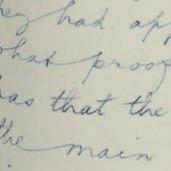 they had app
what proof
has that the
the main